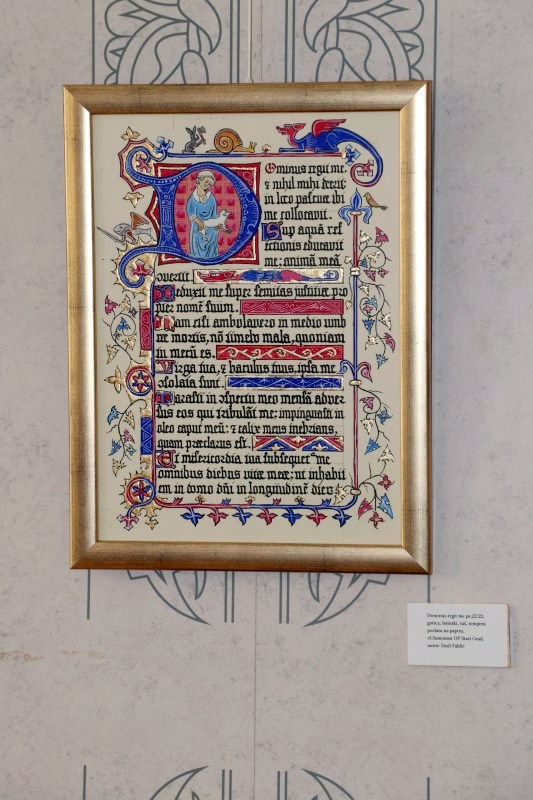 Dominus regit me,
& nihil mihi deerit:
in loco pascue ibi
me collocavit.
Sup aquā ref
ectionis educavit
me; animā meā
Deduxit me super semitas
nomē suum.
Nam etsi ambulavero in medio umb
re mortis, nō timebo mala, quoniam
tu mecū es.
Virga tua, & baculus tuus, ipsa me
cōsolata sunt.
Parasti in cōspectu meo mensā adver
sus eos qui tribulāt me: impinguasti in
oleo caput meū: & calix meus inebrians,
quam præclarus est.
Et misericordia tua subsequet me
omnibus diebus vitæ meæ; ut inhabit
em in domo dn̄i in longitudinē dierū
Dominus regit me ps.22/23,
gotica, batoski, tuš, tempera
pozlata na papiru,
vl.Samostan OP Stari Grad,
autor: